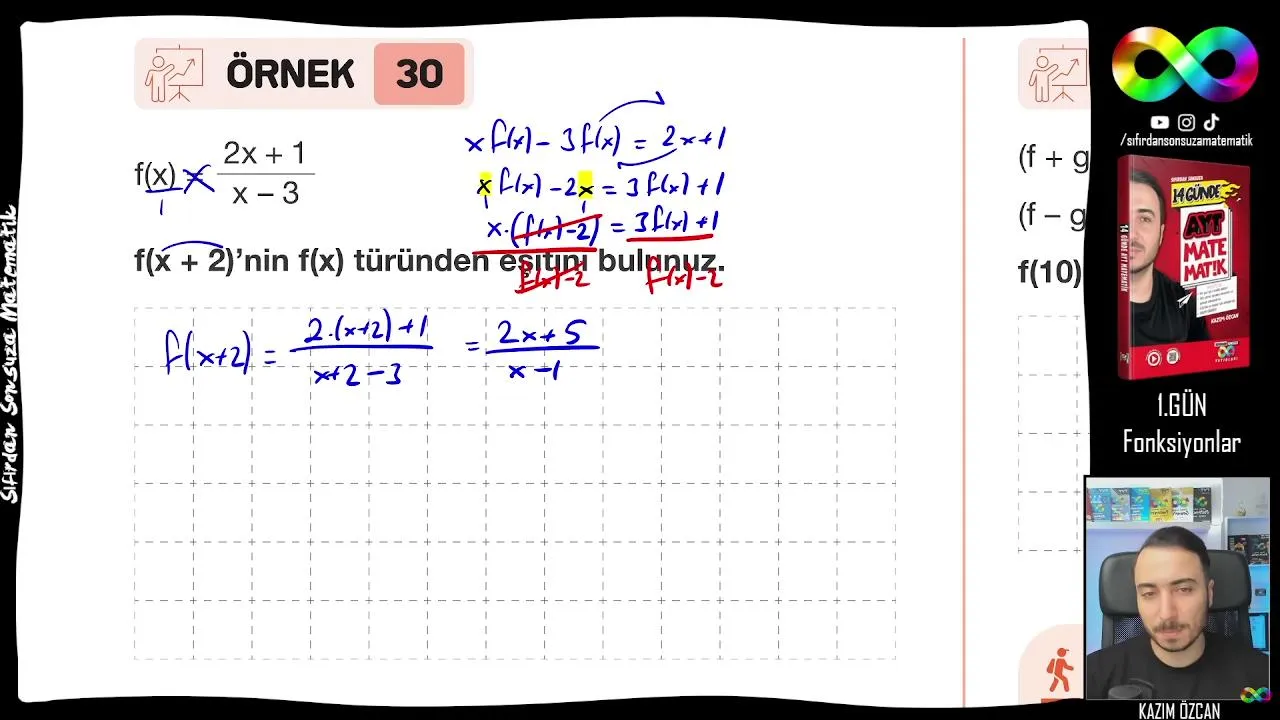 ÖRNEK 30
f(x) = 2x + 1 / x − 3
1
x f(x) − 3f(x) = 2x+1
x f(x) − 2x = 3f(x) + 1
x·(f(x)−2) = 3f(x)+1
f(x)−2 f(x)−2
f(x + 2)'nin f(x) türünden eşitini bulunuz.
f(x+2) = 2·(x+2)+1 / x+2−3 = 2x+5 / x−1
(f + g
(f − g
f(10)
/sifirdansonsuzamatematik
SIFIRDAN SONSUZA
14 GÜNDE
AYT
MATE
MATİK
KAZIM ÖZCAN
1.GÜN
Fonksiyonlar
KAZIM ÖZCAN
Sıfırdan Sonsuza Matematik